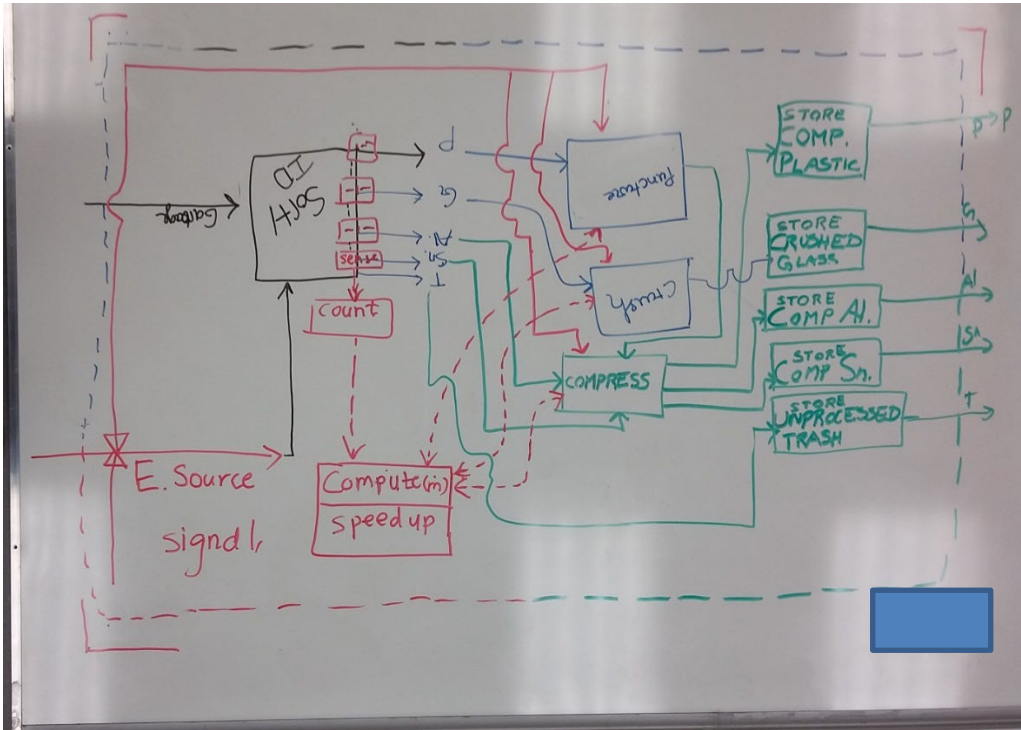 Garbage
ID
Sort
sense
count
P
G
Al.
Sn.
T
Puncture
Crush
COMPRESS
STORE
COMP.
PLASTIC
STORE
CRUSHED
GLASS
STORE
COMP Al.
STORE
COMP Sn.
STORE
UNPROCESSED
TRASH
P P
G
Al
Sn
T
E. Source
signal,
Compute(ṁ)
speed up